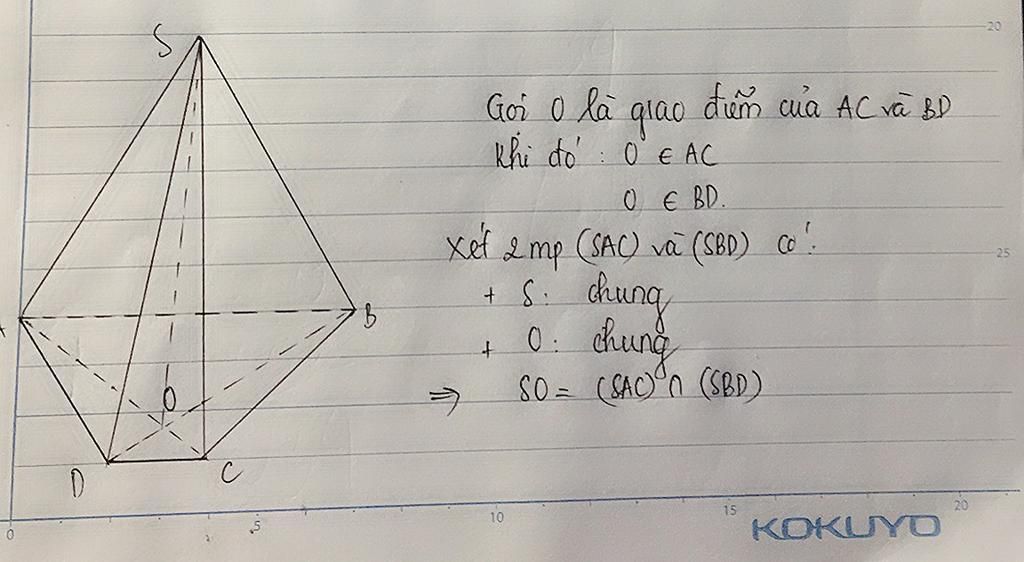 S
A
B
O
D
C
Gọi O là giao điểm của AC và BD
Khi đó : O ∈ AC
O ∈ BD.
Xét 2 mp (SAC) và (SBD) có :
+ S : chung
+ O : chung
⇒ SO = (SAC) ∩ (SBD)
20
25
0
5
10
15
20
KOKUYO